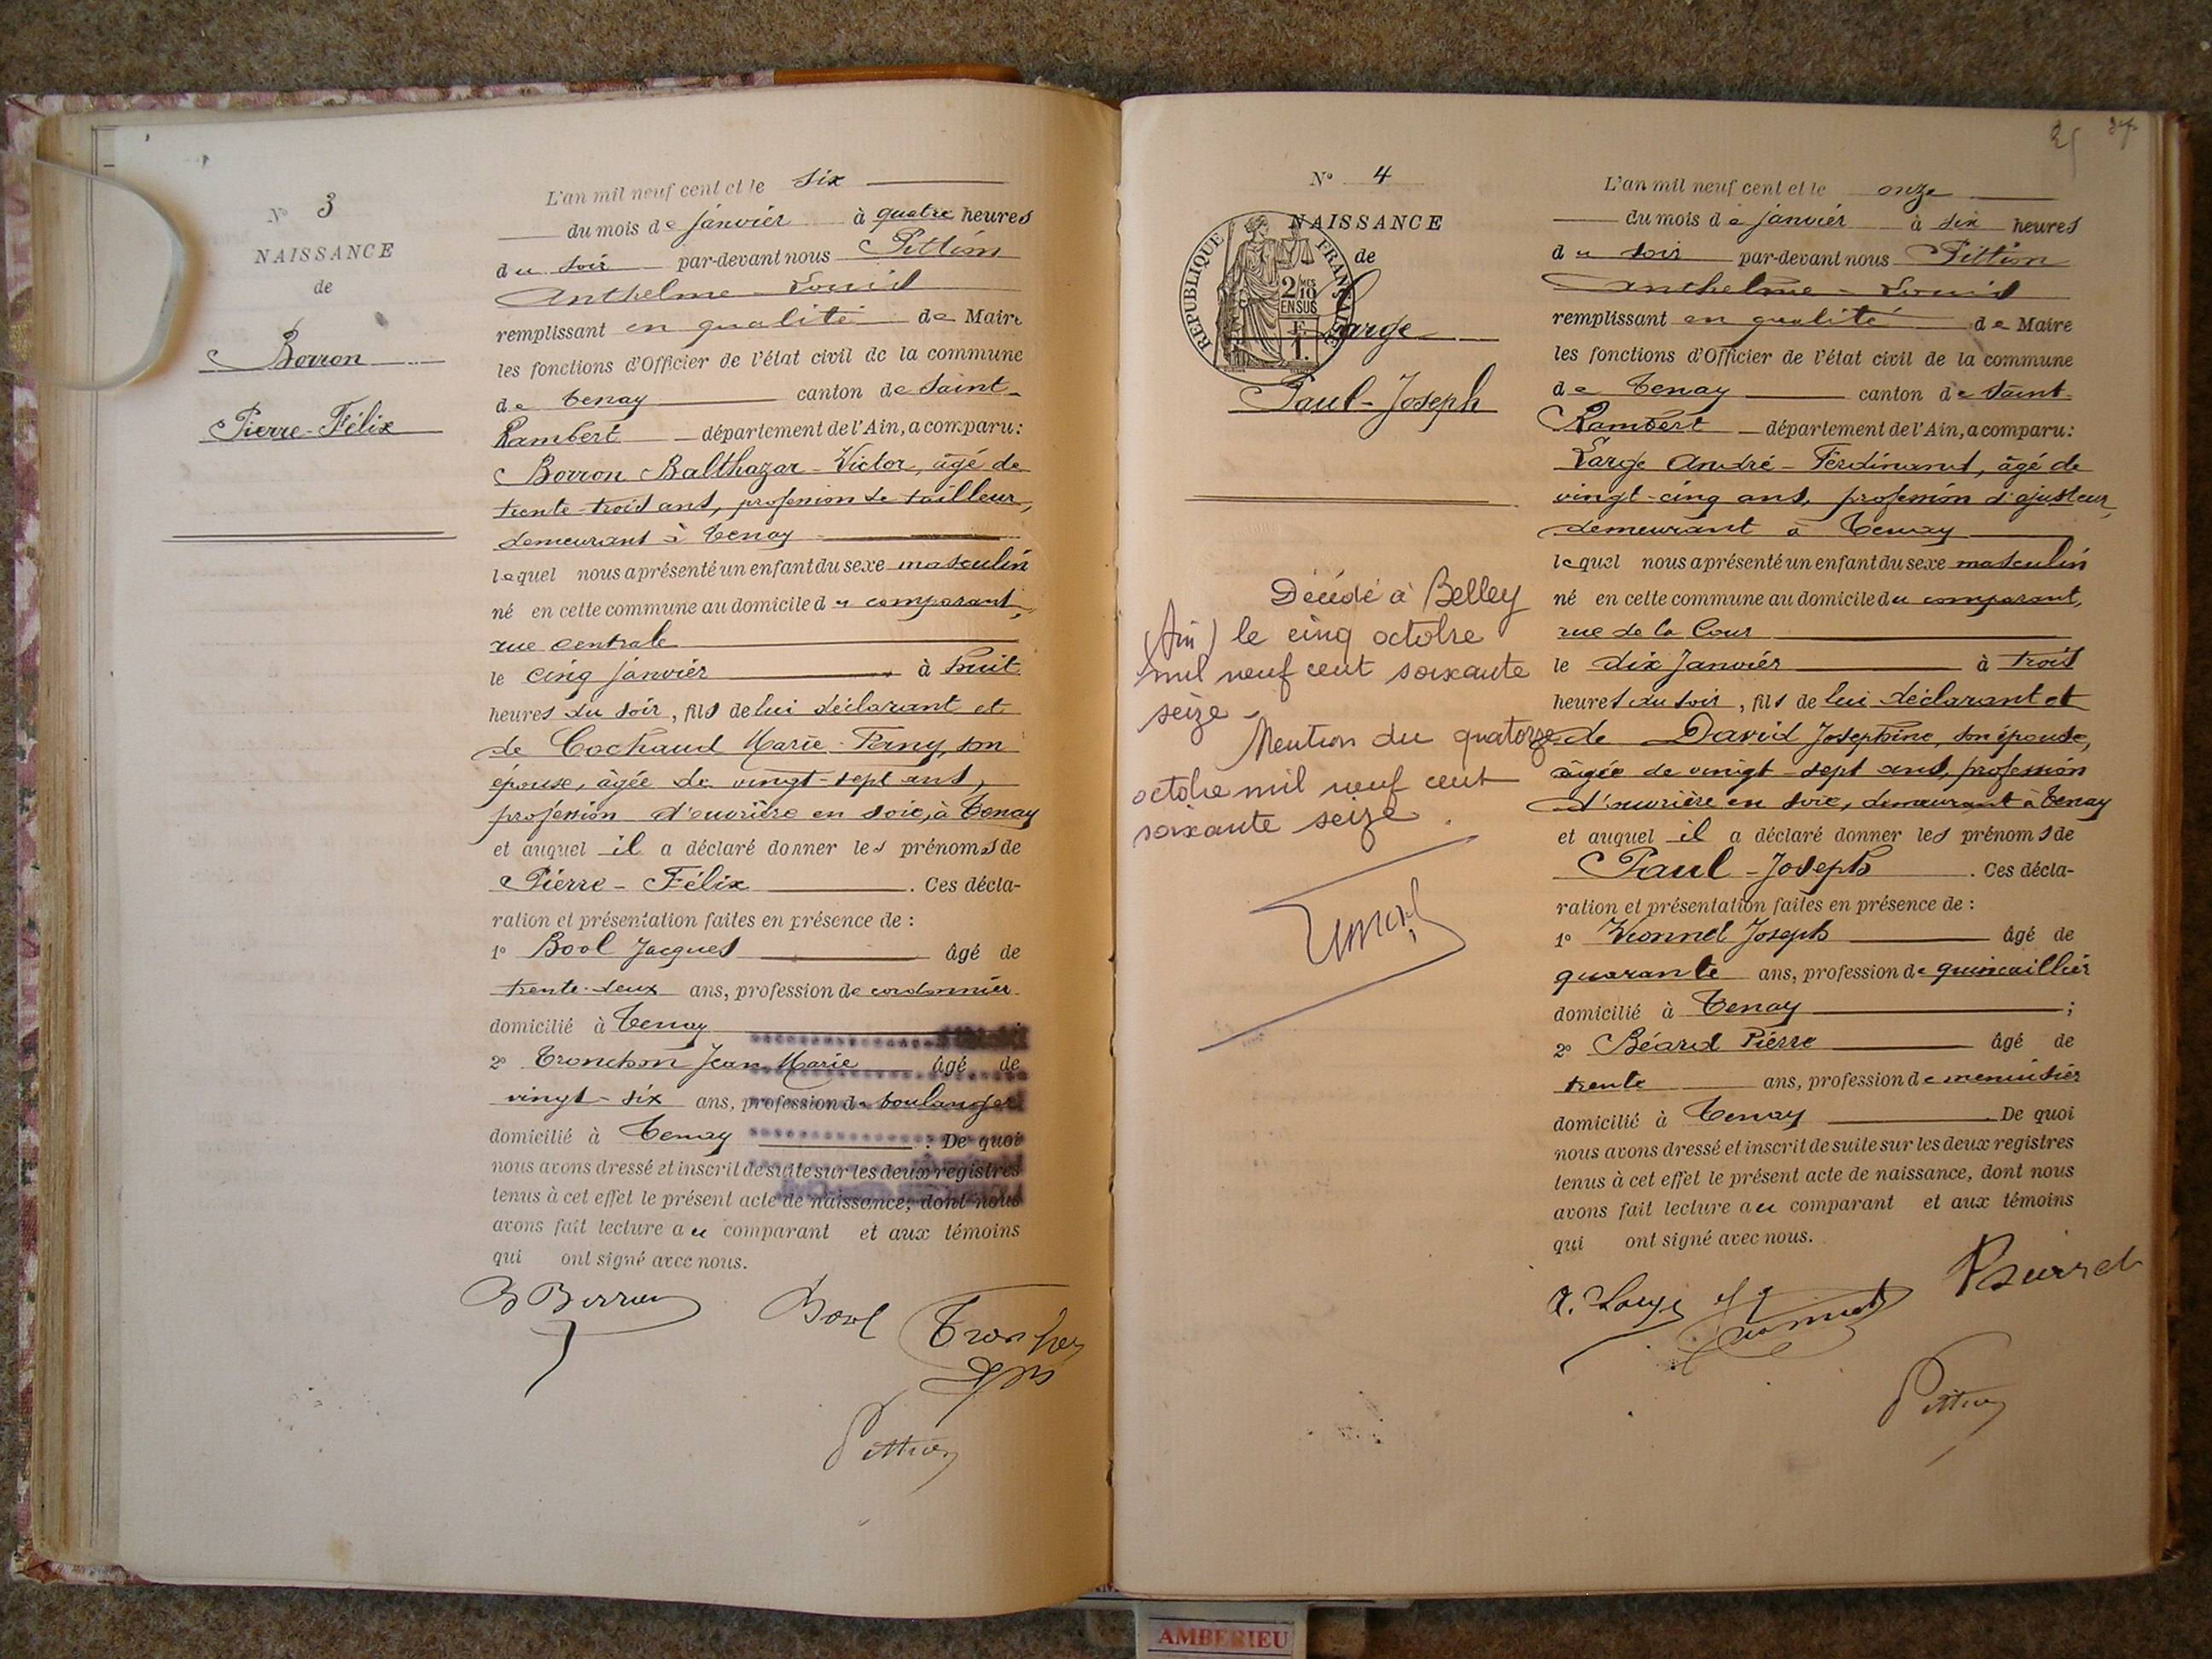 N° 3
NAISSANCE
de
Borron
Pierre-Félix
L'an mil neuf cent et le six
du mois de janvier à quatre heures
du soir par-devant nous Pittion
Anthelme-Louis
remplissant en qualité de Maire
les fonctions d'Officier de l'état civil de la commune
de Tenay canton de Saint-
Rambert département de l'Ain, a comparu:
Borron Balthazar-Victor, âgé de
trente-trois ans, profession de tailleur,
demeurant à Tenay
lequel nous a présenté un enfant du sexe masculin
né en cette commune au domicile du comparant,
rue centrale
le cinq janvier à huit
heures du soir, fils de lui déclarant et
de Cochaud Marie-Perny, son
épouse, âgée de vingt-sept ans,
profession d'ouvrière en soie, à Tenay
et auquel il a déclaré donner les prénoms de
Pierre-Félix. Ces décla-
ration et présentation faites en présence de :
1° Bool Jacques âgé de
trente-deux ans, profession de cordonnier
domicilié à Tenay
2° Tronchon Jean Marie âgé de
vingt-six ans, profession de boulanger
domicilié à Tenay. De quoi
nous avons dressé et inscrit de suite sur les deux registres
tenus à cet effet le présent acte de naissance; dont nous
avons fait lecture au comparant et aux témoins
qui ont signé avec nous.
B Borron Bool Tronchon
Pittion
25
N° 4
NAISSANCE
de
REPUBLIQUE FRANÇAISE
2 MES 10
EN SUS
Large
Paul-Joseph
Décédé à Belley
(Ain) le cinq octobre
mil neuf cent soixante
seize.
Mention du quatorze
octobre mil neuf cent
soixante seize.
L'an mil neuf cent et le onze
du mois de janvier à six heures
du soir par-devant nous Pittion
Anthelme-Louis
remplissant en qualité de Maire
les fonctions d'Officier de l'état civil de la commune
de Tenay canton de Saint-
Rambert département de l'Ain, a comparu:
Large André-Ferdinand, âgé de
vingt-cinq ans, profession d'ajusteur,
demeurant à Tenay
lequel nous a présenté un enfant du sexe masculin
né en cette commune au domicile du comparant,
rue de la Cour
le dix janvier à trois
heures du soir, fils de lui déclarant et
de David Josephine, son épouse,
âgée de vingt-sept ans, profession
d'ouvrière en soie, demeurant à Tenay
et auquel il a déclaré donner les prénoms de
Paul-Joseph. Ces décla-
ration et présentation faites en présence de :
1° Vionnet Joseph âgé de
quarante ans, profession de quincaillier
domicilié à Tenay ;
2° Béard Pierre âgé de
trente ans, profession de menuisier
domicilié à Tenay. De quoi
nous avons dressé et inscrit de suite sur les deux registres
tenus à cet effet le présent acte de naissance, dont nous
avons fait lecture au comparant et aux témoins
qui ont signé avec nous.
A. Large
Pittion
AMBERIEU